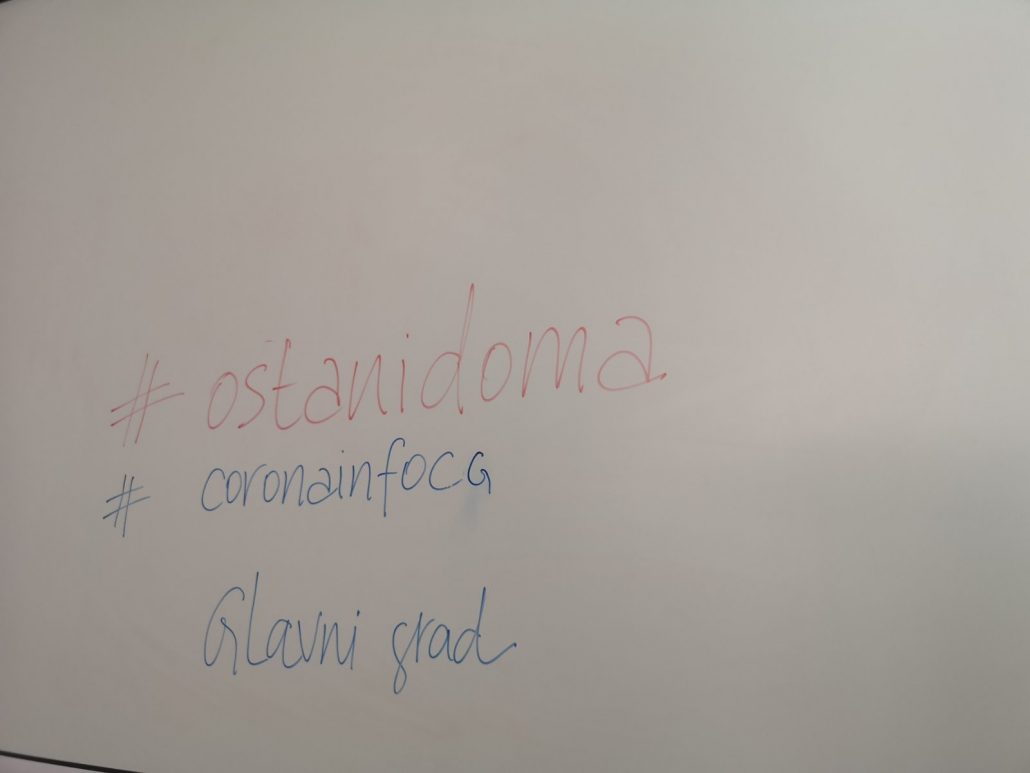 #ostanidoma
# coronainfoCG
Glavni grad